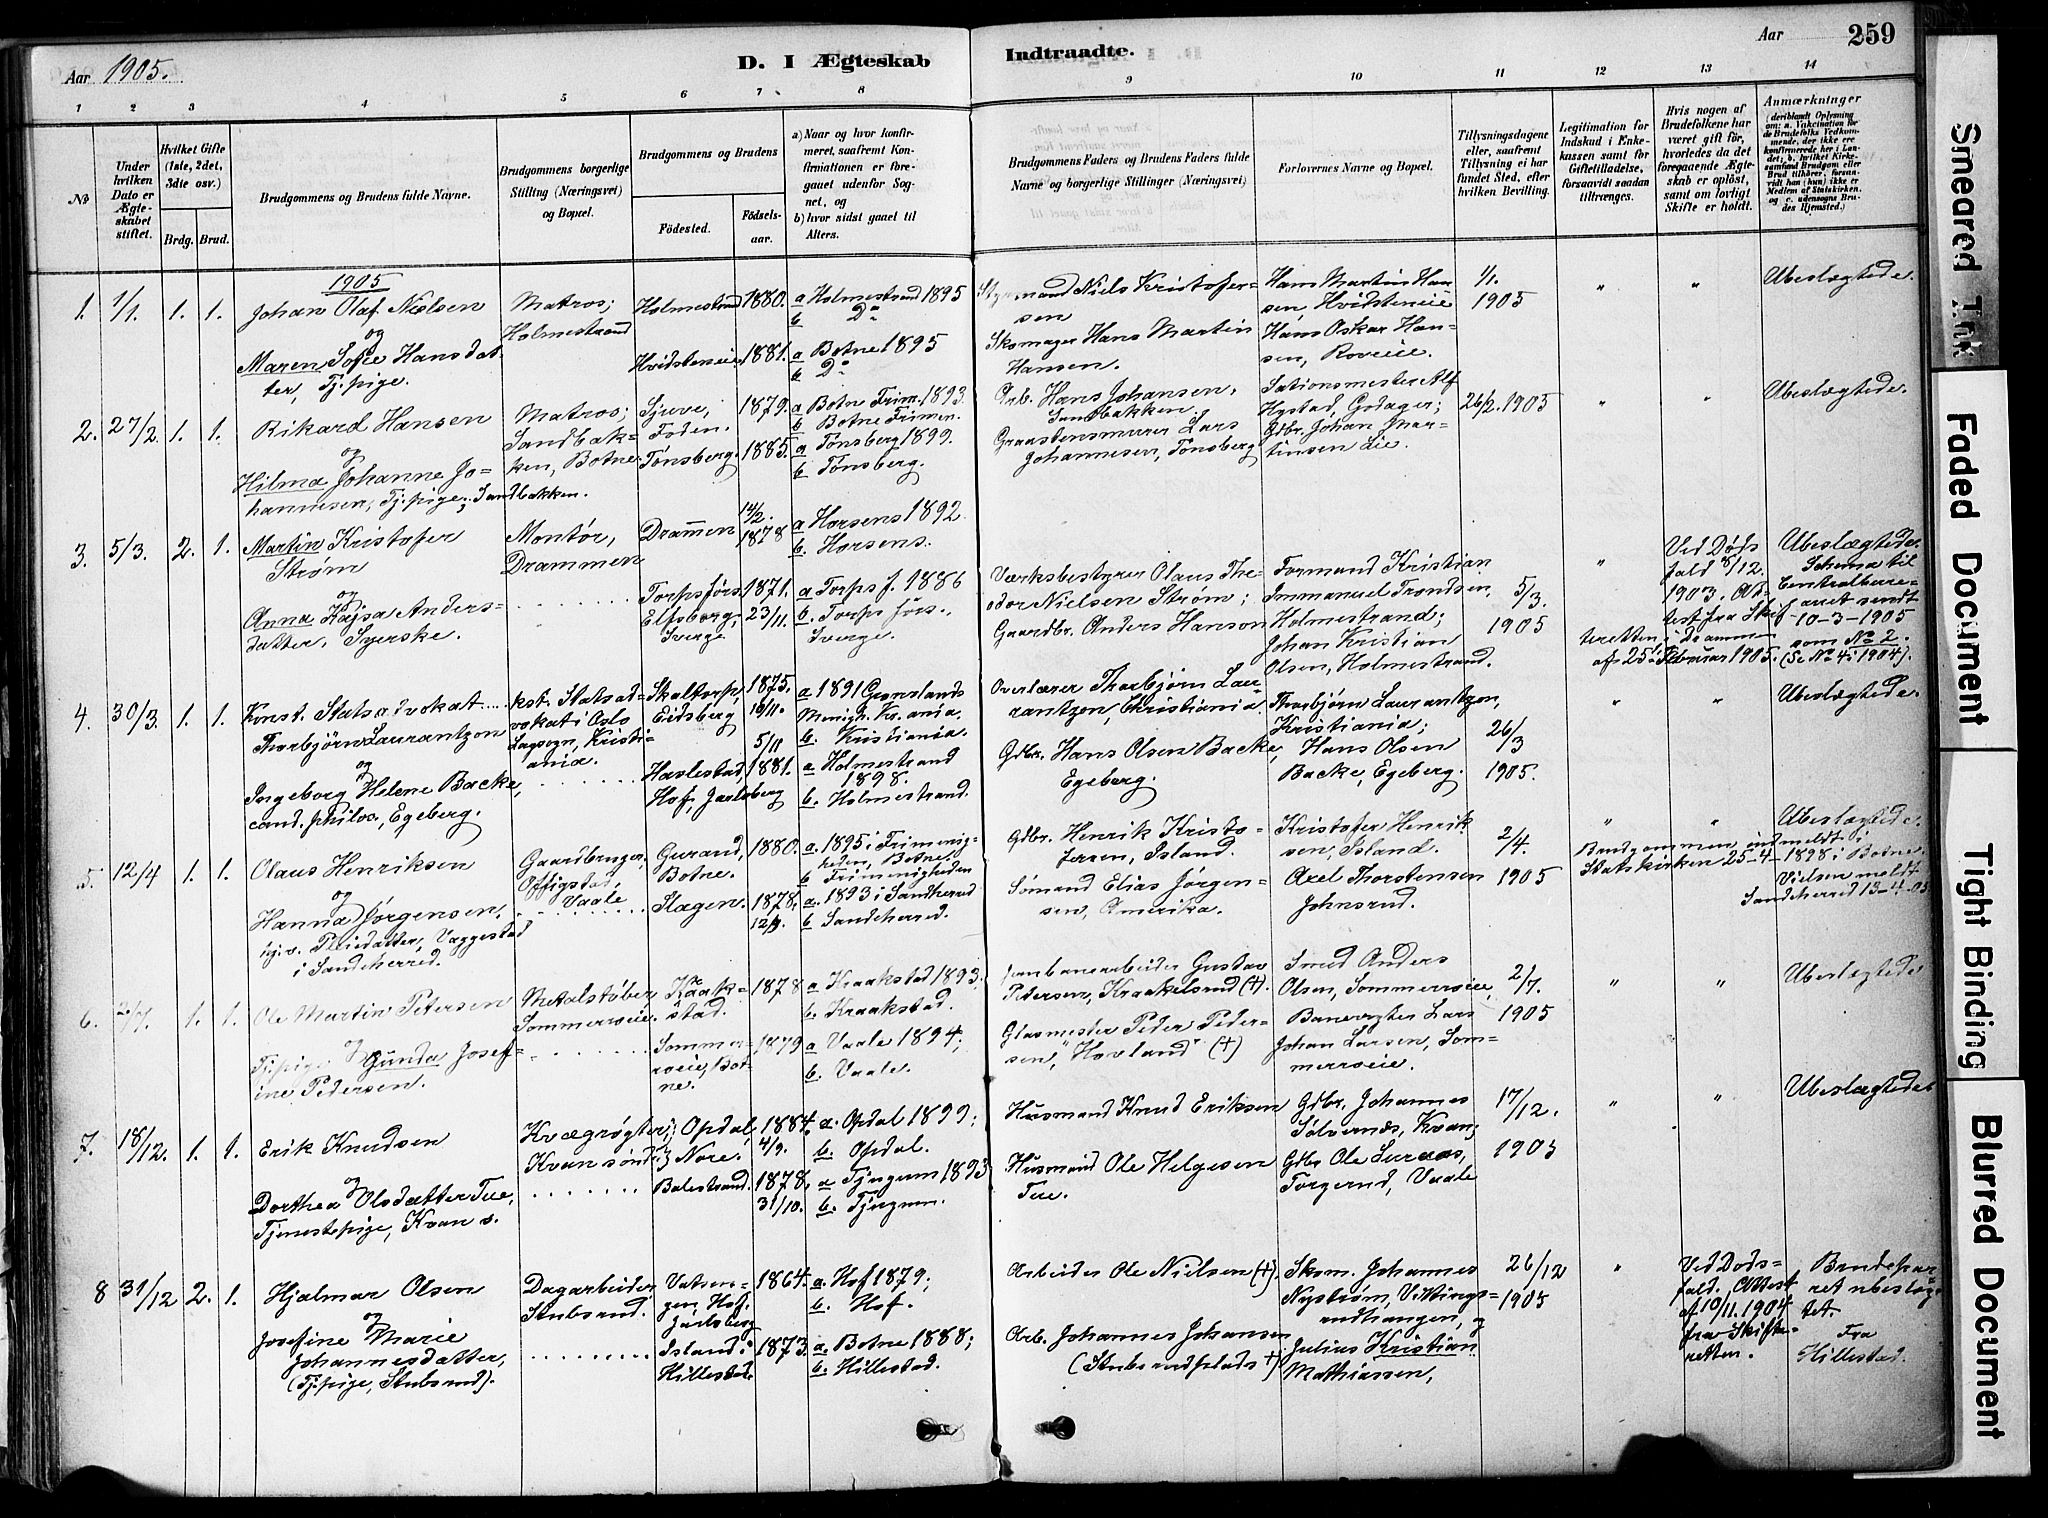 Aar 1905.
D. I Ægteskab Indtraadte.
Aar
259
1 2 3 4 5 6 7 8 9 10 11 12 13 14
No
Under hvilken Dato er Ægteskabet stiftet.
Hvilket Gifte (1ste, 2det, 3die osv.)
Brdg. Brud.
Brudgommens og Brudens fulde Navne.
Brudgommens borgerlige Stilling (Næringsvei) og Bopæl.
Brudgommens og Brudens
Födested. Födselsaar.
a) Naar og hvor konfirmeret, saafremt Konfirmationen er foregaaet udenfor Sognet, og
b) hvor sidst gaaet til Alters.
Brudgommens Faders og Brudens Faders fulde Navne og borgerlige Stillinger (Næringsvei)
Forlovernes Navne og Bopæl.
Tillysningsdagene eller, saafremt Tillysning ei har fundet Sted, efter hvilken Bevilling.
Legitimation for Indskud i Enkekassen samt for Giftetilladelse, forsaavidt saadan tiltrænges.
Hvis nogen af Brudefolkene har været gift før, hvorledes da det foregaaende Ægteskab er oplöst, samt om lovligt Skifte er holdt.
Anmærkninger (deriblandt Oplysning om: a. Vakcination for de Brudefolks Vedkommende, der ikke ere konfirmerede her i Landet; b. hvilket Kirkesamfund Brudgom eller Brud tilhörer, forsavidt han (hun) ikke er Medlem af Statskirken, og c. udensogns Brudes Hjemsted.)
1905
1. 1/1. 1. 1. Johan Olaf Nielsen
og
Maren Sofie Hansdatter, Tj.pige.
Matros; Holmestrand
Holmestrand 1880. a Holmestrand 1895
b Do
Hvidsteneie. 1881. a Botne 1895
b Do
Styrmand Niels Kristofersen
Skomager Hans Martin Hansen.
Hans Martin Hansen, Hvidsteneie
Hans Oskar Hansen, Roveie.
1/1. 1905
" " Ubeslægtede.
2. 27/2. 1. 1. Rikard Hansen
og
Hilma Johanne Johannesen, Tj.pige, Sandbakken.
Matros; Sandbakken, Botne.
Sjuve, Foden. 1879. a Botne Frim. 1893.
b Botne Frimen.
Tønsberg. 1885. a Tønsberg 1899.
b Tønsberg.
Arb. Hans Johansen, Sandbakken.
Graastensmurer Lars Johannesen, Tønsberg
Sationsmester Alf Hystad, Godager;
Gdbr. Johan Martinsen Lie.
26/2. 1905
" " Ubeslægtede.
3. 5/3. 2. 1. Martin Kristofer Strøm
og
Anna Kajsa Andersdatter, Syerske.
Montør, Drammen
Drammen 14/2. 1878 a Horsens 1892
b. Horsens.
Torpsförs. Elfsborg, Sverge 1871. 23/11. a Torps f. 1886
b. Torps förs. Sverge.
Værksbestyrer Olaus Theodor Nielsen Strøm;
Gaardbr. Anders Hanson
Formand Kristian Immanuel Trondsen, Holmestrand;
Johan Kristian Olsen, Holmestrand.
5/3. 1905
"
Ved Dødsfald 8/12. 1903. Attest fra Skifteretten i Drammen af 25. Februar 1905.
Ubeslægtede. Schema til Centralbureauet sendt 10-3-1905 som No 2. (Se No 4 i 1904).
4. 30/3. 1. 1. Konst. Statsadvokat
Thorbjørn Laurantzon
og
Ingeborg Helene Backe, cand. philos., Egeberg.
kst. Statsadvokat i Oslo Lagsogn, Kristiania.
Skaltorp, Eidsberg 1875. 10/11. a 1891 Grønlands Menigh. Kr.ania.
b. Kristiania.
Havlestad, Hof, Jarlsberg 5/11 1881. a. Holmestrand 1898.
b. Holmestrand.
Overlærer Thorbjørn Laurantzen, Christiania
Gdbr. Hans Olsen Backe, Egeberg.
Thorbjørn Laurantzon, Kristiania;
Hans Olsen Backe, Egeberg.
26/3 1905.
" " Ubeslægtede.
5. 12/4 1. 1. Olaus Henriksen
og
Hanna Jørgensen, Vaggestad i Sandeherred.
Gaardbruger, Vaale
Gurand, Botne. 1880. a. 1895 i Frimenigheden, Botne.
b Frimenigheden
Slagen. 1878. 12/9. a. 1893 i Sandherred
b Sandeherred.
Gdbr. Henrik Kristofersen, Island.
Sømand Elias Jørgensen, Amerika.
Kristofer Henriksen, Island.
Axel Thorstensen Johnsrud.
2/4. 1905
" " Ubeslægtede.
Brudgommen indmeldt i Statskirken 25-4-1898 i Botne.
Vielsen meldt Sandeherred 13-4-05
6. 2/7. 1. 1. Ole Martin Petersen
og
Tj.pige Gunda Josefine Pedersen.
Metalstøber Sommerroeie.
Kraakstad. 1878 a. Kraakstad 1893.
b. Kraakstad.
Sommerroeie, Botne. 1879 a Vaale 1894;
b. Vaale.
Jernbanearbeider Gustav Petersen, Kraakelsrud (+).
Glasmester Peder Pedersen, "Hovland" (+)
Smed Anders Olsen, Sommerroeie,
Banevogter Lars Johan Larsen, Sommerroeie.
2/7. 1905
" " Ubeslægtede
7. 18/12. 1. 1. Erik Knudsen
og
Dorthea Olsdatter Tue, Tjenestepige, Kvan s.
Kvægrøgter, Kvansönd.
Opdal, Nore. 1884. 4/9. a. Opdal 1899;
b. Opdal.
Balestrand. 1878. 31/10. a Tjugum 1893
b. Tjugum.
Husmand Knud Eriksen
Husmand Ole Helgesen Tue.
Gdbr. Johannes Sølvernæs, Kvan;
Gdbr Ole Luraas, Torgerud, Vaale
17/12. 1905
" " Ubeslægtede
8 31/12 2. 1. Hjalmar Olsen
og
Josefine Marie Johannesdatter, (Tj.pige, Stubsrud).
Dagarbeider, Stubsrud.
Vatsengen, Hof, Jarlsberg 1864. a. Hof 1879;
b. Hof.
Island i Hillestad. 1873. a. Botne 1888;
b. Hillestad.
Arbeider Ole Nielsen (+).
Arb. Johannes Johansen (Stubsrudplads +)
Skom. Johannes Nystrøm, Vittingsrudhangen, og
Julius Kristian Mathiassen,
26/12 1905
"
Ved Dødsfald. Attest af 10/11. 1904 fra Skifteretten.
Brudeparret ubeslægtet. Fra Hillestad.
Smeared Ink
Faded Document
Tight Binding
Blurred Document